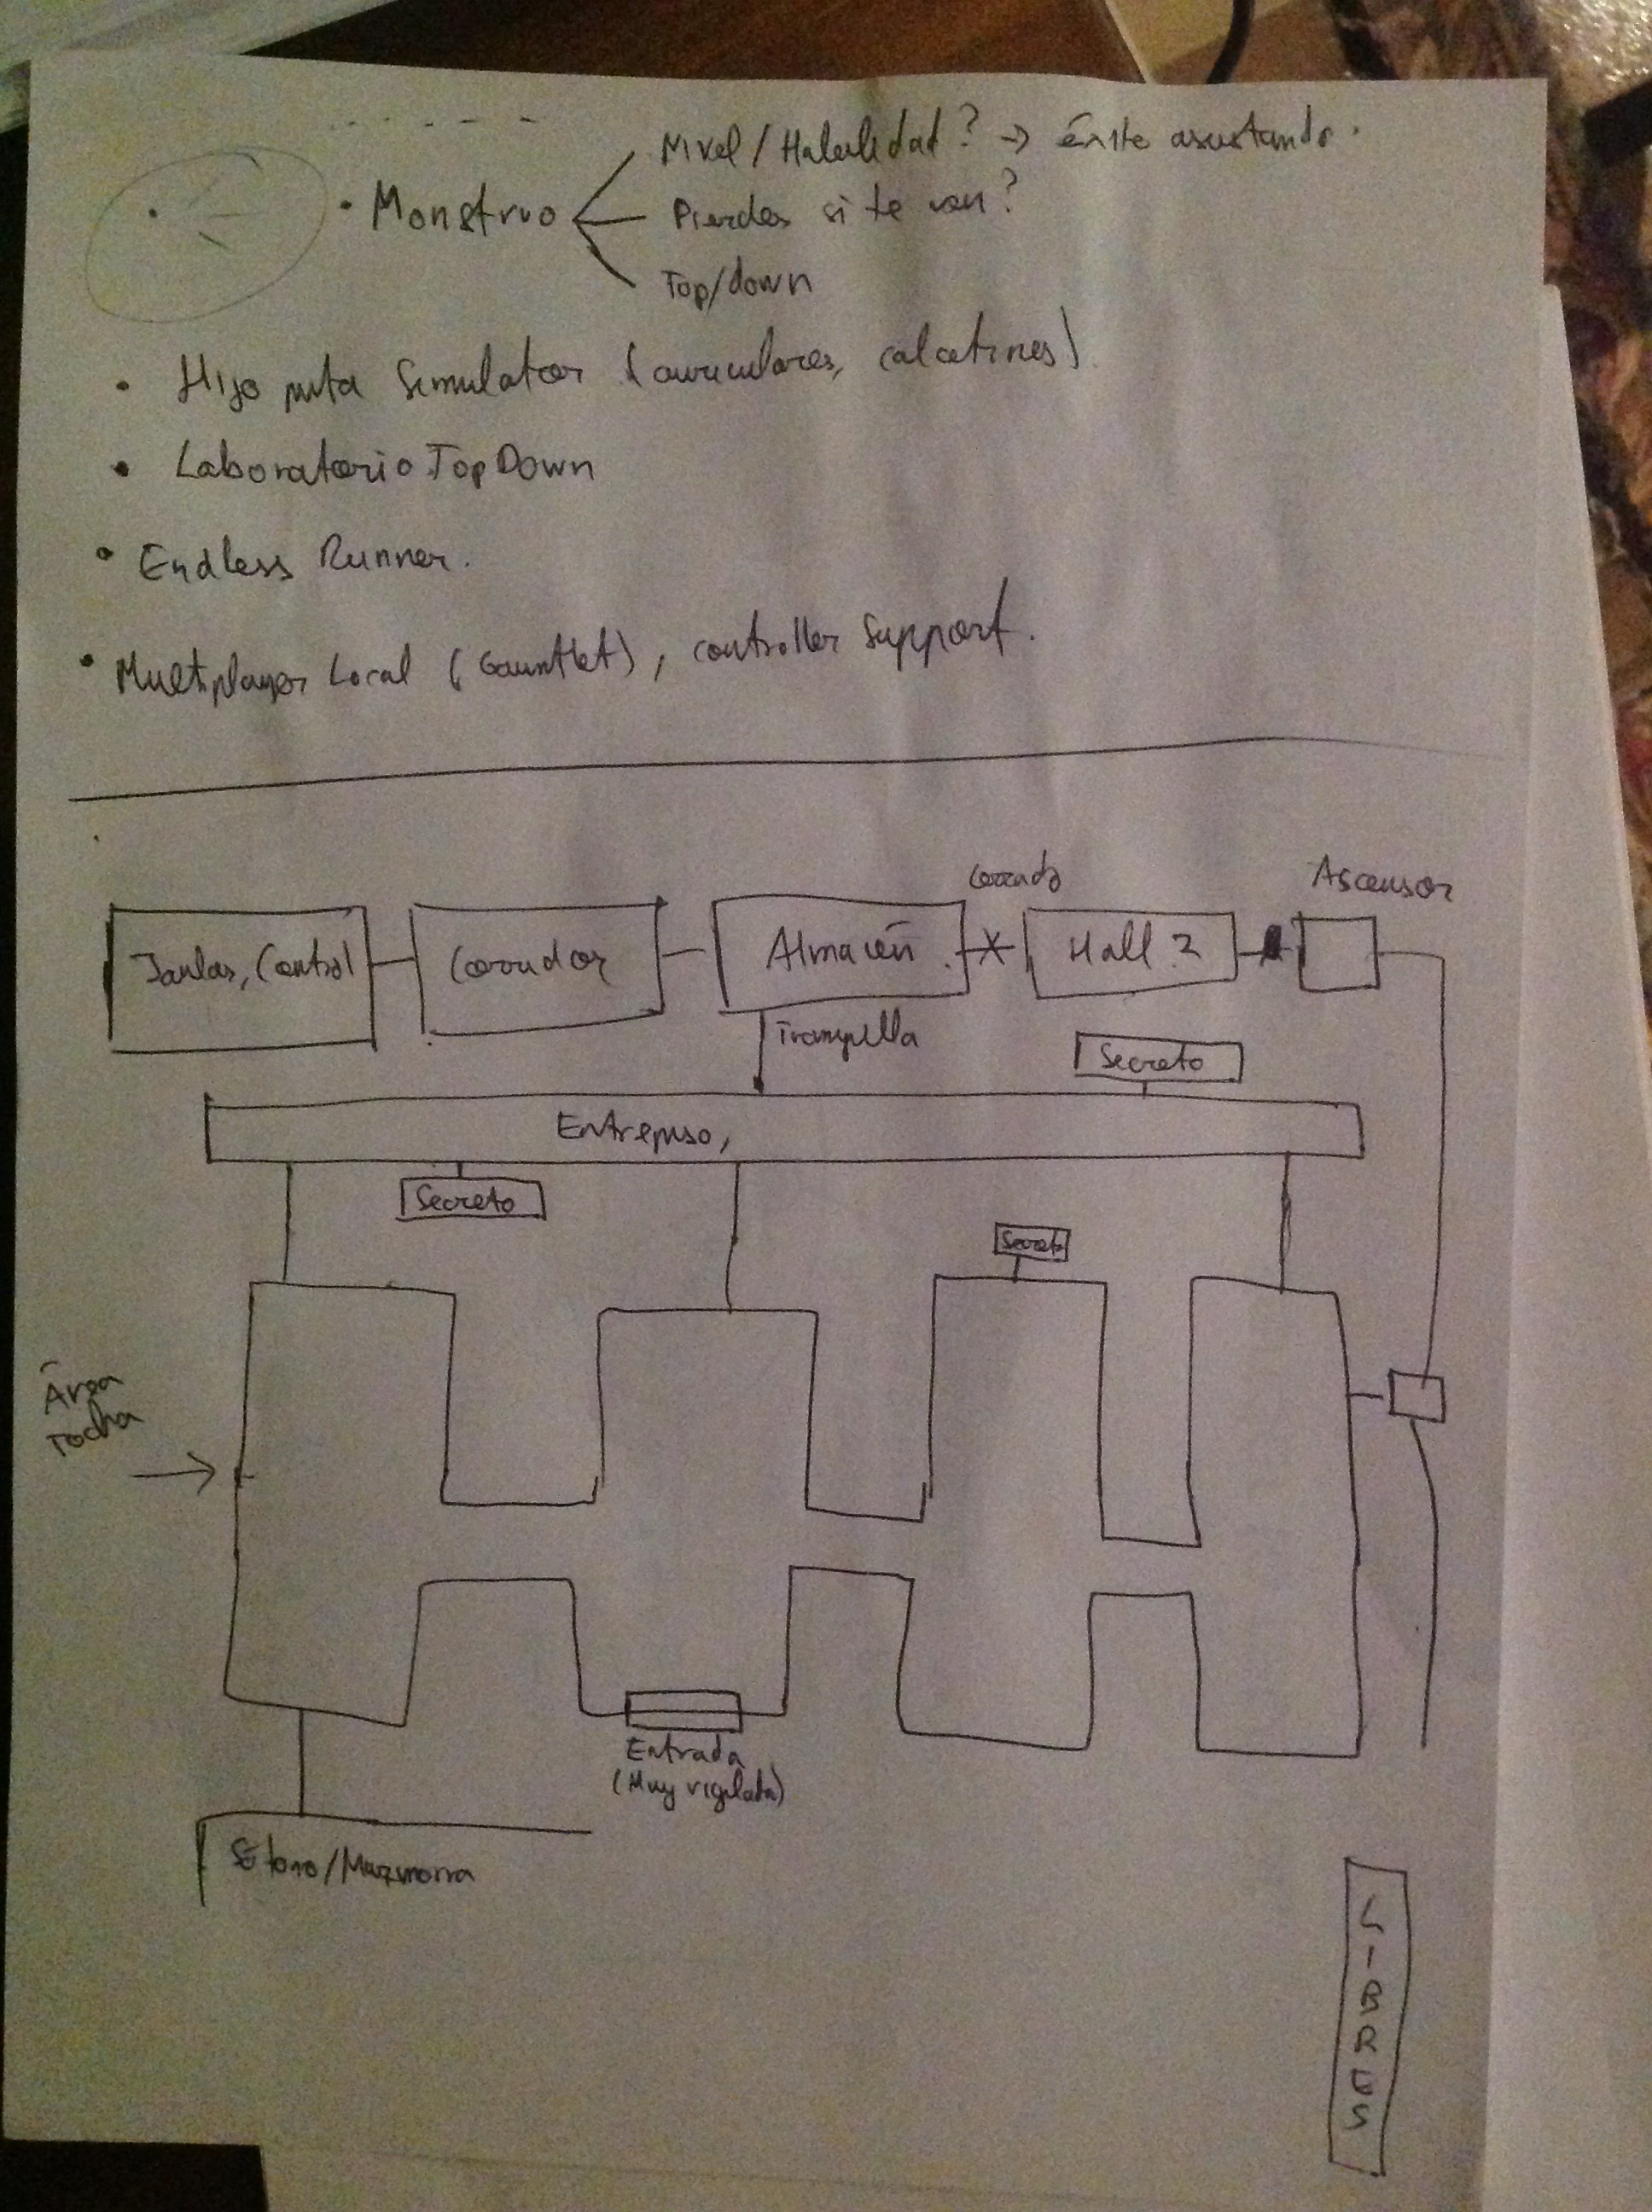 Nivel/Habilidad? → éxito asustando.
• Monstruo
Pierdes si te ven?
Top/down
• Hijo puta Simulator (auriculares, calcetines)
• Laboratorio TopDown
• Endless Runner.
• Multiplayer Local (Gauntlet), controller support.
Cerrado
Ascensor
Jaulas, Control
Corredor
Almacén
Hall 2
Trampilla
Secreto
Entrepiso,
Secreto
Secreto
Área
rocha
Entrada
(Muy vigilada)
Sótano/Mazmorra
LIBRES